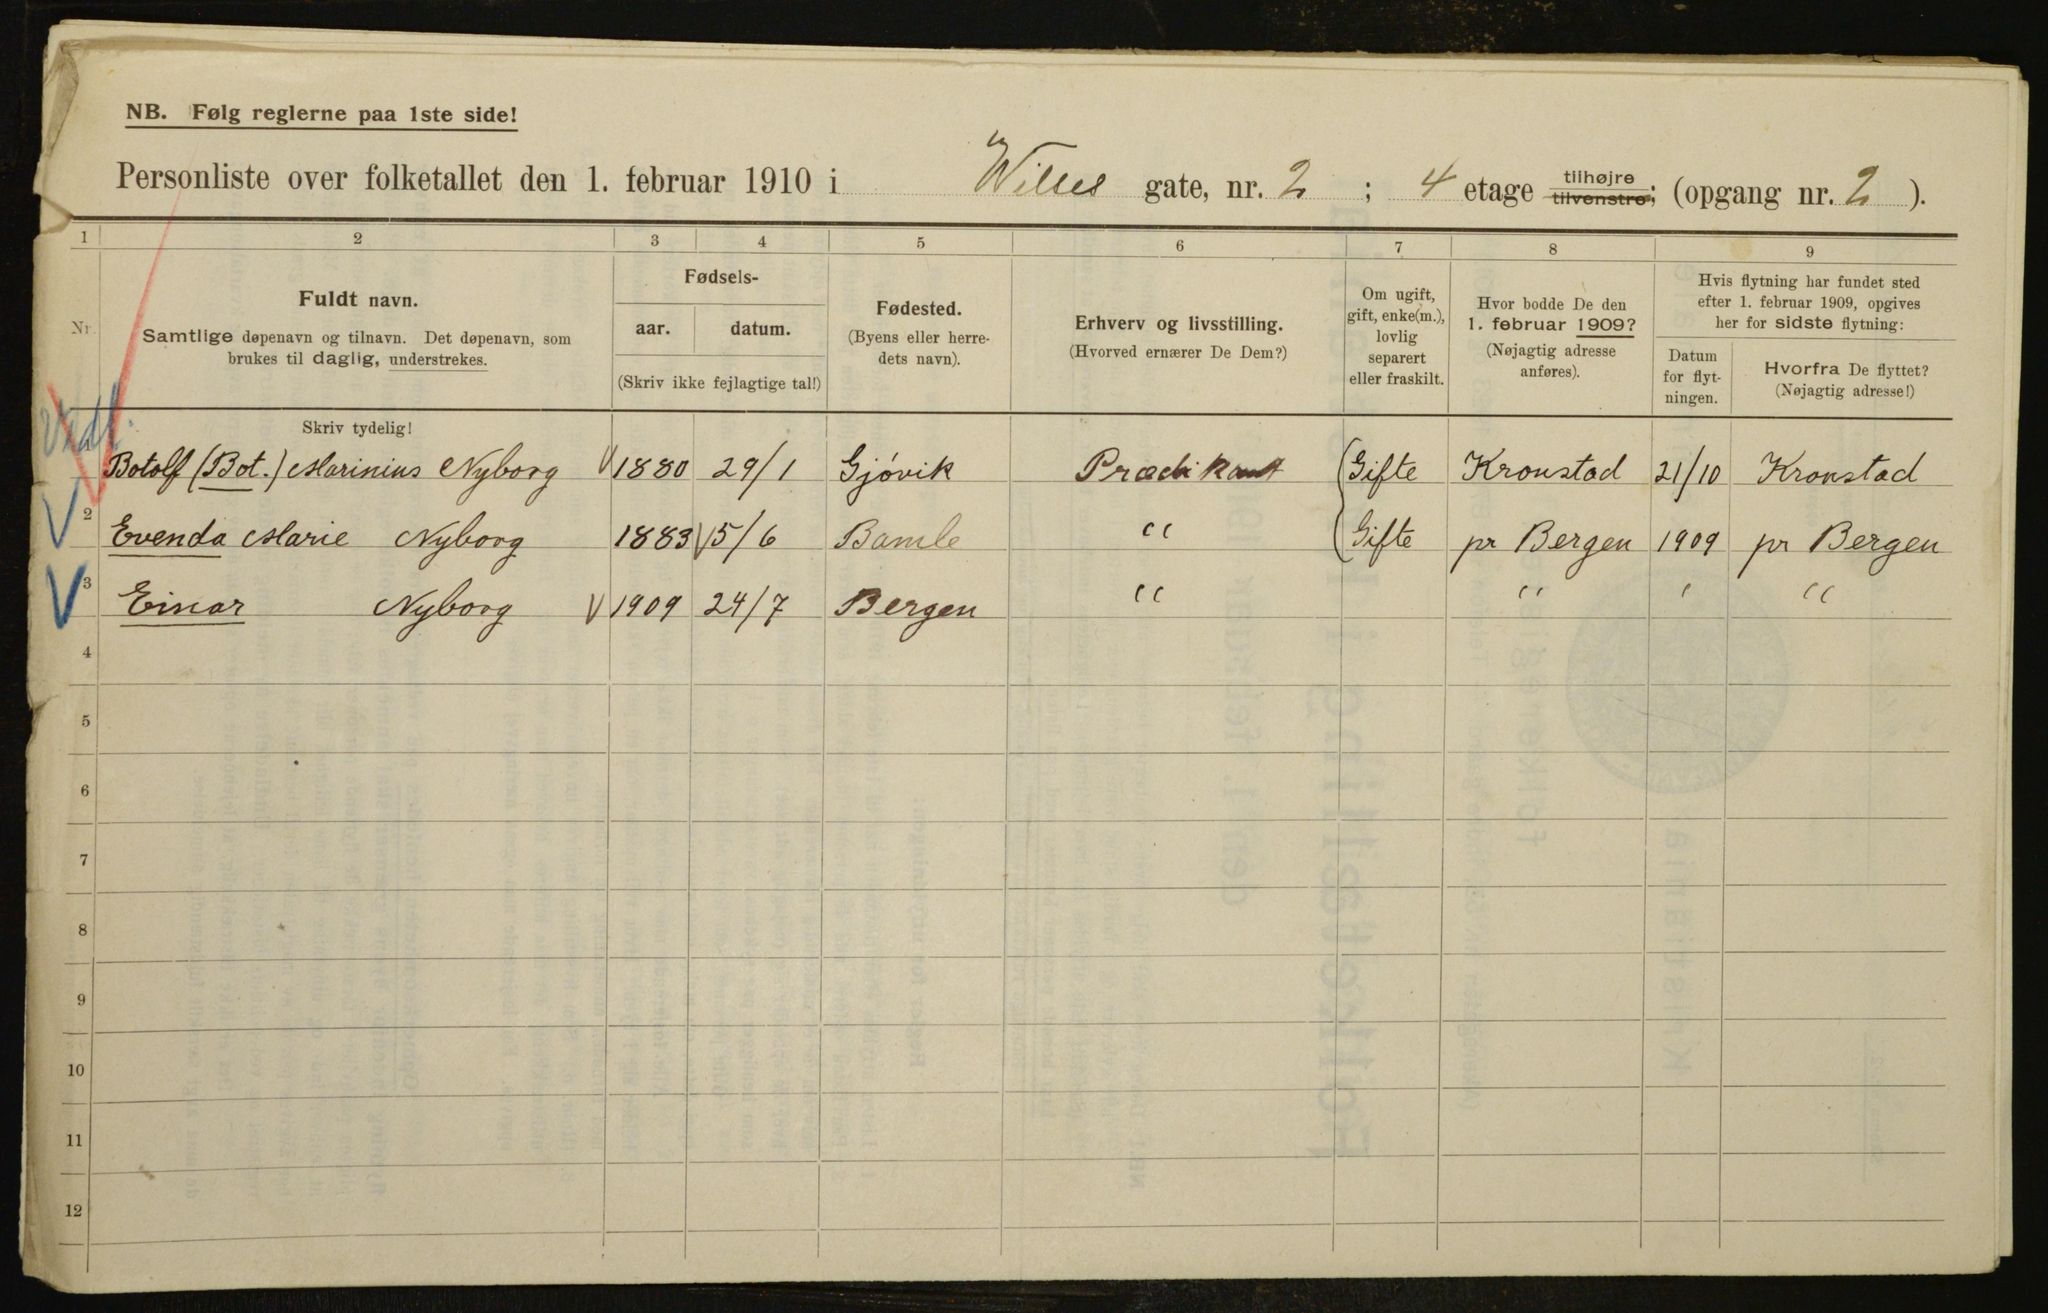 NB. Følg reglerne paa 1ste side!
Personliste over folketallet den 1. februar 1910 i Wilses gate, nr. 2 ; 4 etage tilhøjre tilvenstre; (opgang nr. 2 ).
1 2 3 4 5 6 7 8 9
Nr.
Fuldt navn.
Samtlige døpenavn og tilnavn. Det døpenavn, som
brukes til daglig, understrekes.
Skriv tydelig!
Fødsels-
aar. datum.
(Skriv ikke fejlagtige tal!)
Fødested.
(Byens eller herre-
dets navn).
Erhverv og livsstilling.
(Hvorved ernærer De Dem?)
Om ugift,
gift, enke(m.),
lovlig
separert
eller fraskilt.
Hvor bodde De den
1. februar 1909?
(Nøjagtig adresse
anføres).
Hvis flytning har fundet sted
efter 1. februar 1909, opgives
her for sidste flytning:
Datum
for flyt-
ningen.
Hvorfra De flyttet?
(Nøjagtig adresse!)
Botolf (Bot.) Marinius Nyborg 1880 29/1 Gjóvik Prædikant Gifte Kronstad 21/10 Kronstad
2 Evenda Marie Nyborg 1883 5/6 Bamle " Gifte pr Bergen 1909 pr Bergen
3 Einar Nyborg 1909 24/7 Bergen " " ' "
4
5
6
7
8
9
10
11
12